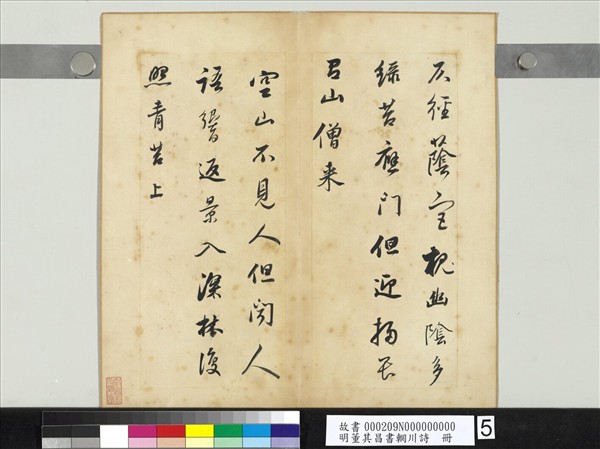 仄徑蔭宮槐幽陰多
綠苔應門但迎掃畏
有山僧來
空山不見人但聞人
語響返景入深林復
照青苔上
故書 000209N000000000
明董其昌書輞川詩 冊
5